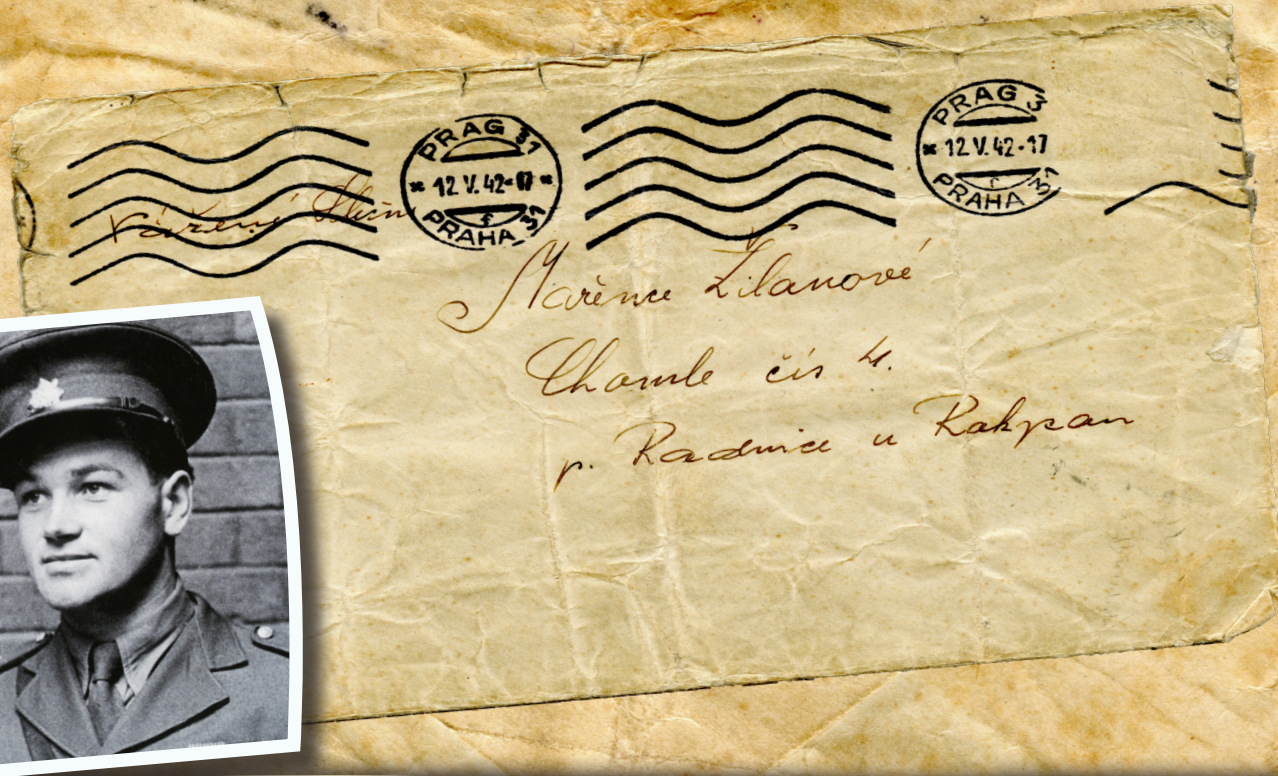 PRAG 31
12 V. 42-17
f
PRAHA 31
PRAG 3
12 V. 42-17
f
PRAHA 31
Vážené Slečn
Mařence Žilanové
Chomle čís 4.
p. Radnice u Rokycan